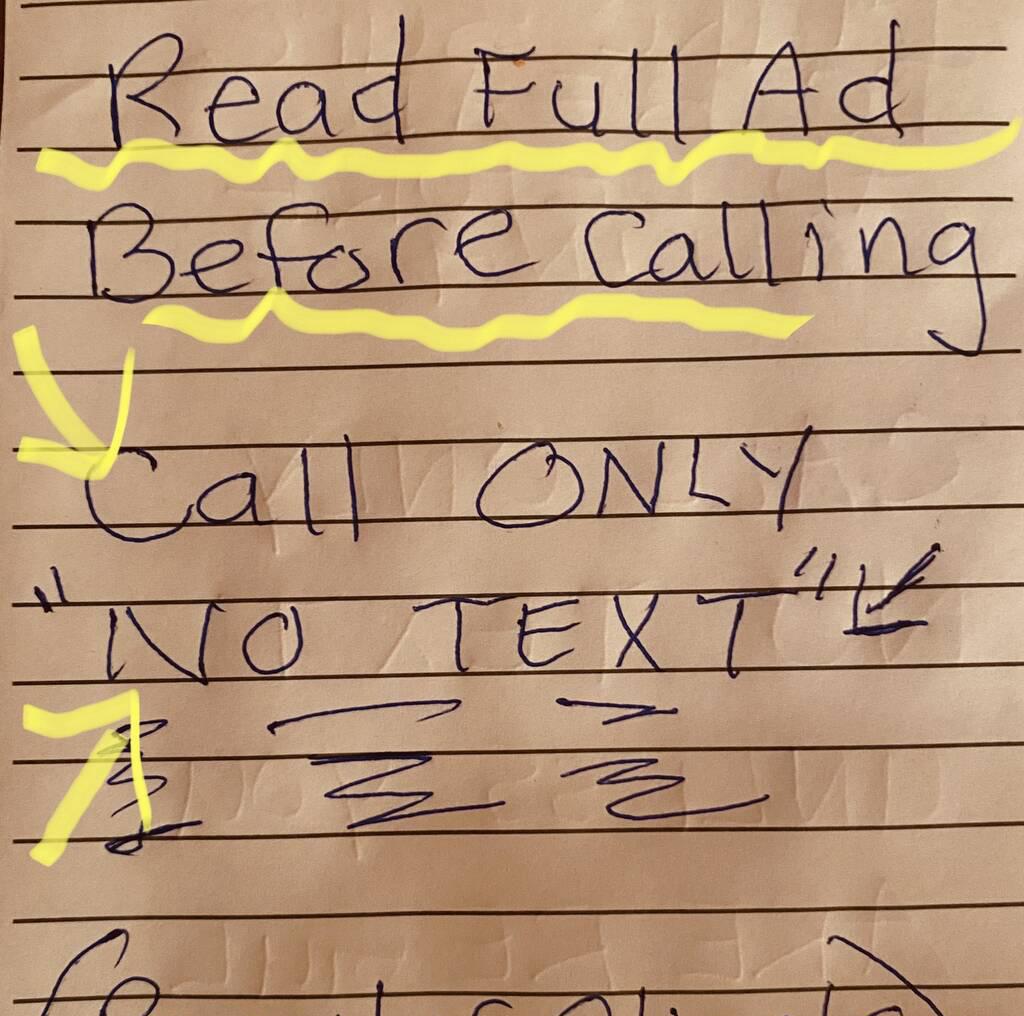 Read Full Ad
Before Calling
Call ONLY
"NO TEXT"